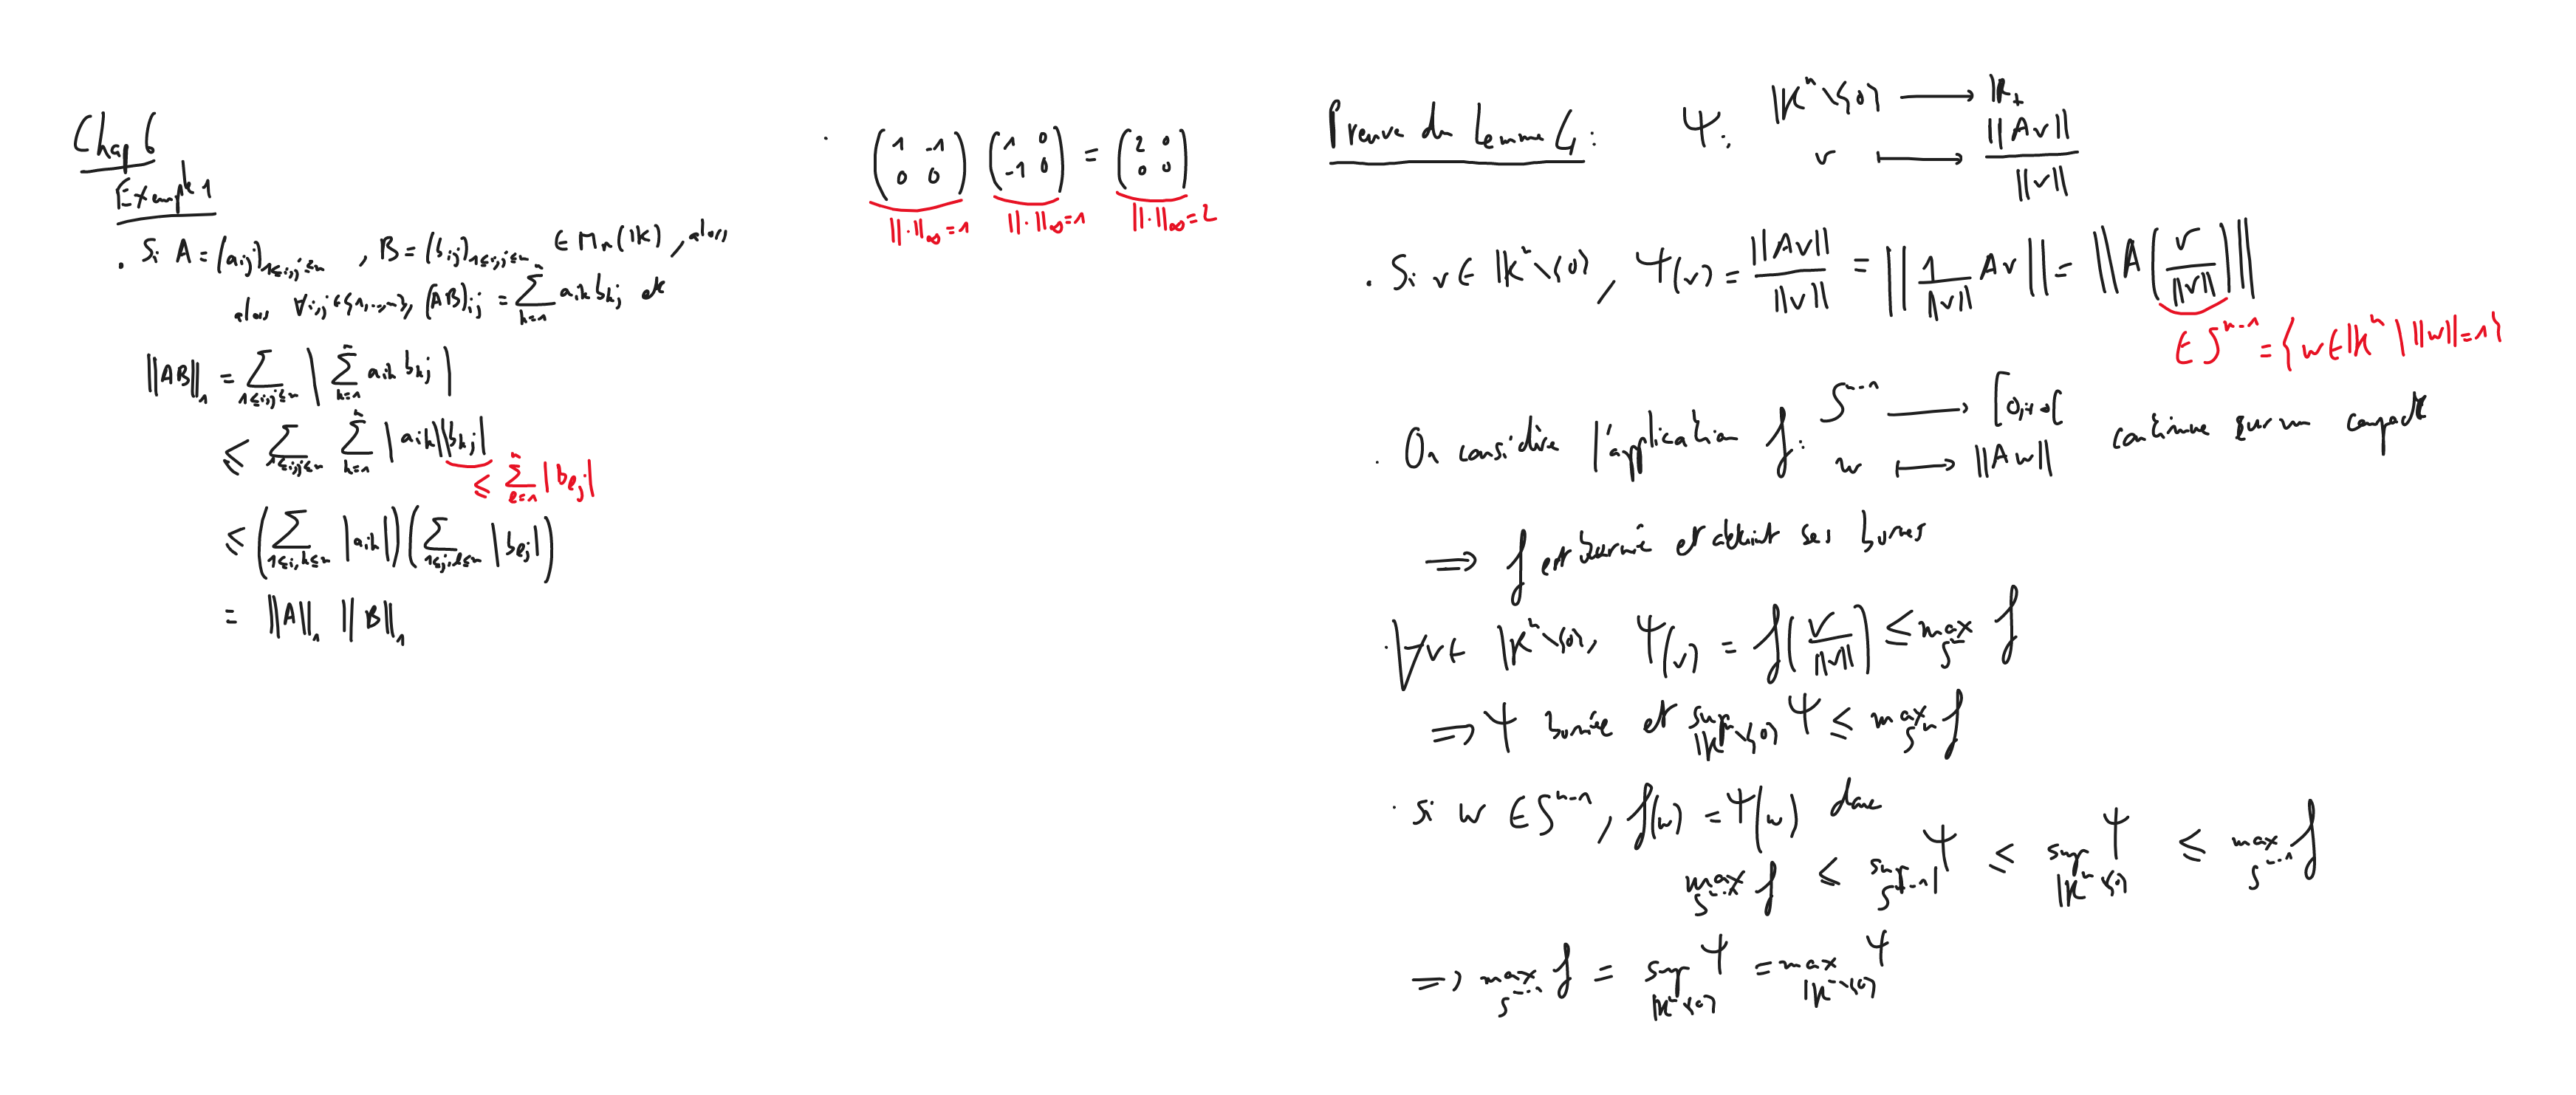 Chap 6
Exemple 1
. Si A = (aij)1≤i,j≤n , B = (bij)1≤i,j≤n ∈ Mn(K), alors
alors ∀i,j ∈ {1,...,n}, (AB)ij = ∑_{k=1}^{n} aik bkj et
||AB||₁ = ∑_{1≤i,j≤n} | ∑_{k=1}^{n} aik bkj |
≤ ∑_{1≤i,j≤n} ∑_{k=1}^{n} |aik||bkj|
≤ ∑_{ℓ=1}^{n} |bℓj|
≤ (∑_{1≤i,k≤n} |aik|)(∑_{1≤j,ℓ≤n} |bℓj|)
= ||A||₁ ||B||₁
. (1 -1 ; 0 0) (1 0 ; -1 0) = (2 0 ; 0 0)
||·||∞=1 ||·||∞=1 ||·||∞=2
Preuve du Lemme 4 : Ψ: K^n\{0} → R+
v ↦ ||Av|| / ||v||
. Si v ∈ K^n\{0}, Ψ(v) = ||Av|| / ||v|| = || 1/||v|| Av || = ||A(v/||v||)||
∈ S^{n-1} = {w ∈ K^n | ||w||=1}
. On considère l'application f: S^{n-1} → [0,+∞[ continue sur un compact
w ↦ ||Aw||
⟹ f est bornée et atteint ses bornes
. ∀v ∈ K^n\{0}, Ψ(v) = f(v/||v||) ≤ max_{S^{n-1}} f
⟹ Ψ bornée et sup_{K^n\{0}} Ψ ≤ max_{S^{n-1}} f
. Si w ∈ S^{n-1}, f(w) = Ψ(w) donc
max_{S^{n-1}} f ≤ sup_{S^{n-1}} Ψ ≤ sup_{K^n\{0}} Ψ ≤ max_{S^{n-1}} f
⟹ max_{S^{n-1}} f = sup_{K^n\{0}} Ψ = max_{K^n\{0}} Ψ